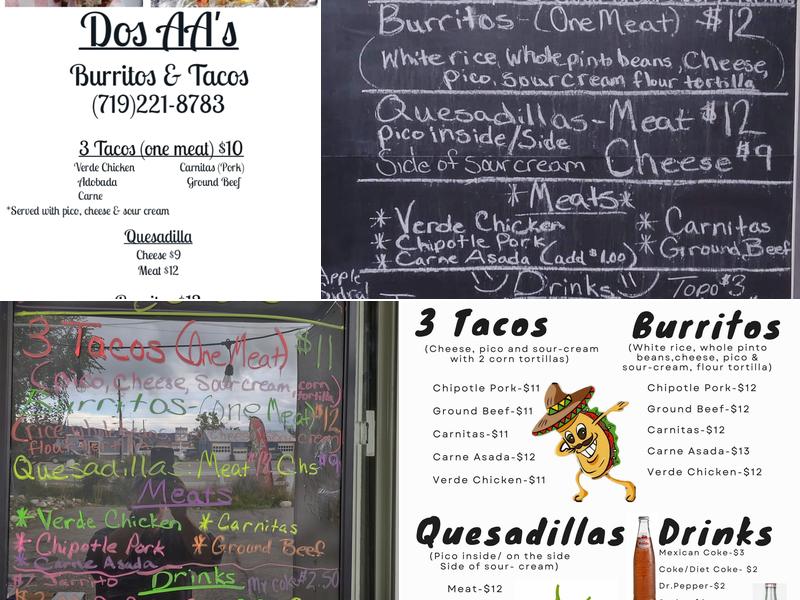 Dos AA's
Burritos & Tacos
(719)221-8783
3 Tacos (one meat) $10
Verde Chicken
Carnitas (Pork)
Adobada
Ground Beef
Carne
*Served with pico, cheese & sour cream
Quesadilla
Cheese $9
Meat $12
Burritos-(One Meat) $12
(White rice, whole pinto beans, Cheese,
Pico, Sour Cream flour tortilla)
Quesadillas-Meat $12
pico inside/Side
Side of sour cream Cheese $9
*Meats*
* Verde Chicken
* Carnitas
* Chipotle Pork
* Ground Beef
* Carne Asada (add $1.00)
Apple
Drinks
Topo $3
3 Tacos (One Meat) $11
(Pico, Cheese, Sour Cream, corn tortilla)
Burritos-(one Meat) $12
Quesadillas-Meat $12 Chs $9
Meats
* Verde Chicken
* Carnitas
* Chipotle Pork
* Ground Beef
* Carne Asada
Drinks
Jarrito
Mx coke $2.50
3 Tacos
(Cheese, pico and sour-cream
with 2 corn tortillas)
Chipotle Pork-$11
Ground Beef-$11
Carnitas-$11
Carne Asada-$12
Verde Chicken-$11
Burritos
(White rice, whole pinto
beans,cheese, pico &
sour-cream, flour tortilla)
Chipotle Pork-$12
Ground Beef-$12
Carnitas-$12
Carne Asada-$13
Verde Chicken-$12
Quesadillas
(Pico inside/ on the side
Side of sour- cream)
Meat-$12
Drinks
Mexican Coke-$3
Coke/Diet Coke- $2
Dr.Pepper-$2